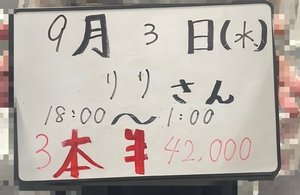 9月3日(水)
りりさん
18:00〜1:00
3本半 42,000